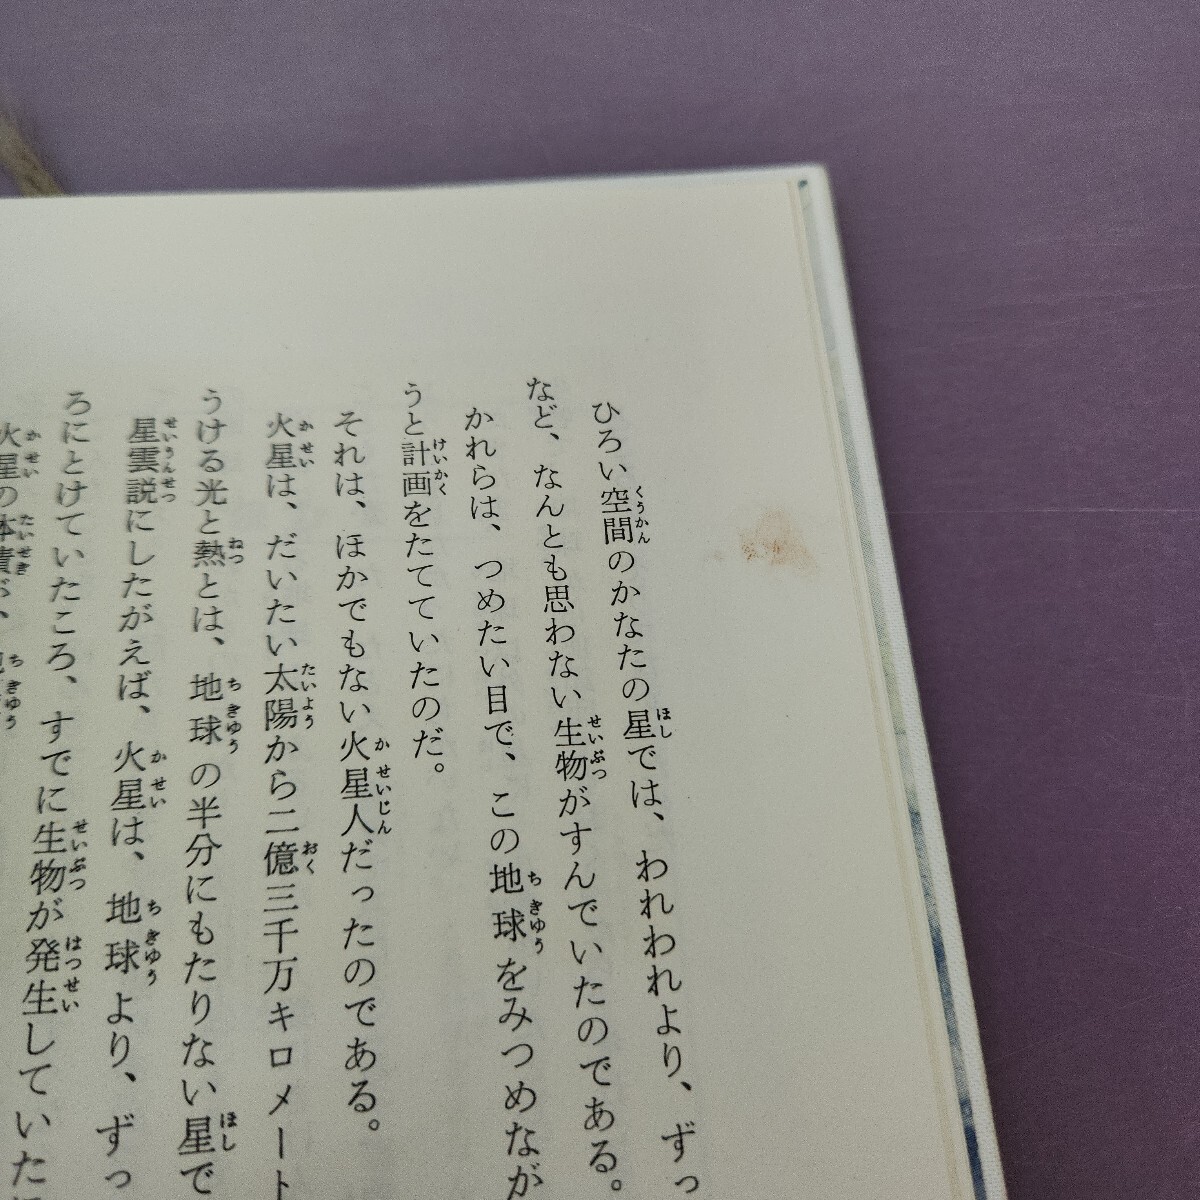 ひろい空間のかなたの星では、われわれより、ずっ
など、なんとも思わない生物がすんでいたのである。
かれらは、つめたい目で、この地球をみつめなが
うと計画をたてていたのだ。
それは、ほかでもない火星人だったのである。
火星は、だいたい太陽から二億三千万キロメート
うける光と熱とは、地球の半分にもたりない星で
星雲説にしたがえば、火星は、地球より、ずっ
ろにとけていたころ、すでに生物が発生していた
火星の体積が、